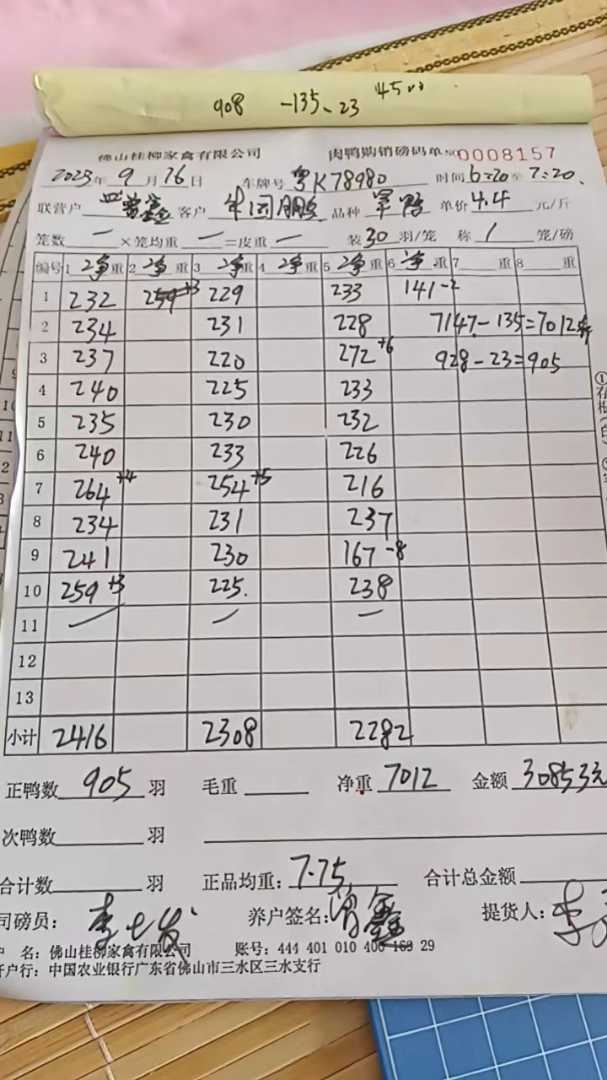 908 -135、23 45
佛山桂柳家禽有限公司 肉鸭购销磅码单 0008157
2023年9月16日 车牌号 粤K78980 时间6:20至7:20
联营户 鑫 客户 品种 单价4.4元/斤
笼数 一 ×笼均重 一 =皮重 一 装30羽/笼 称1笼/磅
编号 1 净重 2 净重 3 净重 4 净重 5 净重 6 净重 7 重 8 重
1 232 259+3 229 233 141-2
2 234 231 228 7147-135=7012斤
3 237 220 272+6 928-23=905
4 240 225 233
5 235 230 232
6 240 233 226
7 264+4 254+5 216
8 234 231 237
9 241 230 167-8
10 259+3 225. 238
11 一 一 一
12
13
小计 2416 2308 2282
正鸭数 905 羽 毛重 净重 7012 金额 30853元
次鸭数 羽
合计数 羽 正品均重: 7.75 合计总金额
司磅员: 李 养户签名: 鑫 提货人: 李
户 名: 佛山桂柳家禽有限公司 账号: 444 401 010 400 169 29
开户行: 中国农业银行广东省佛山市三水区三水支行